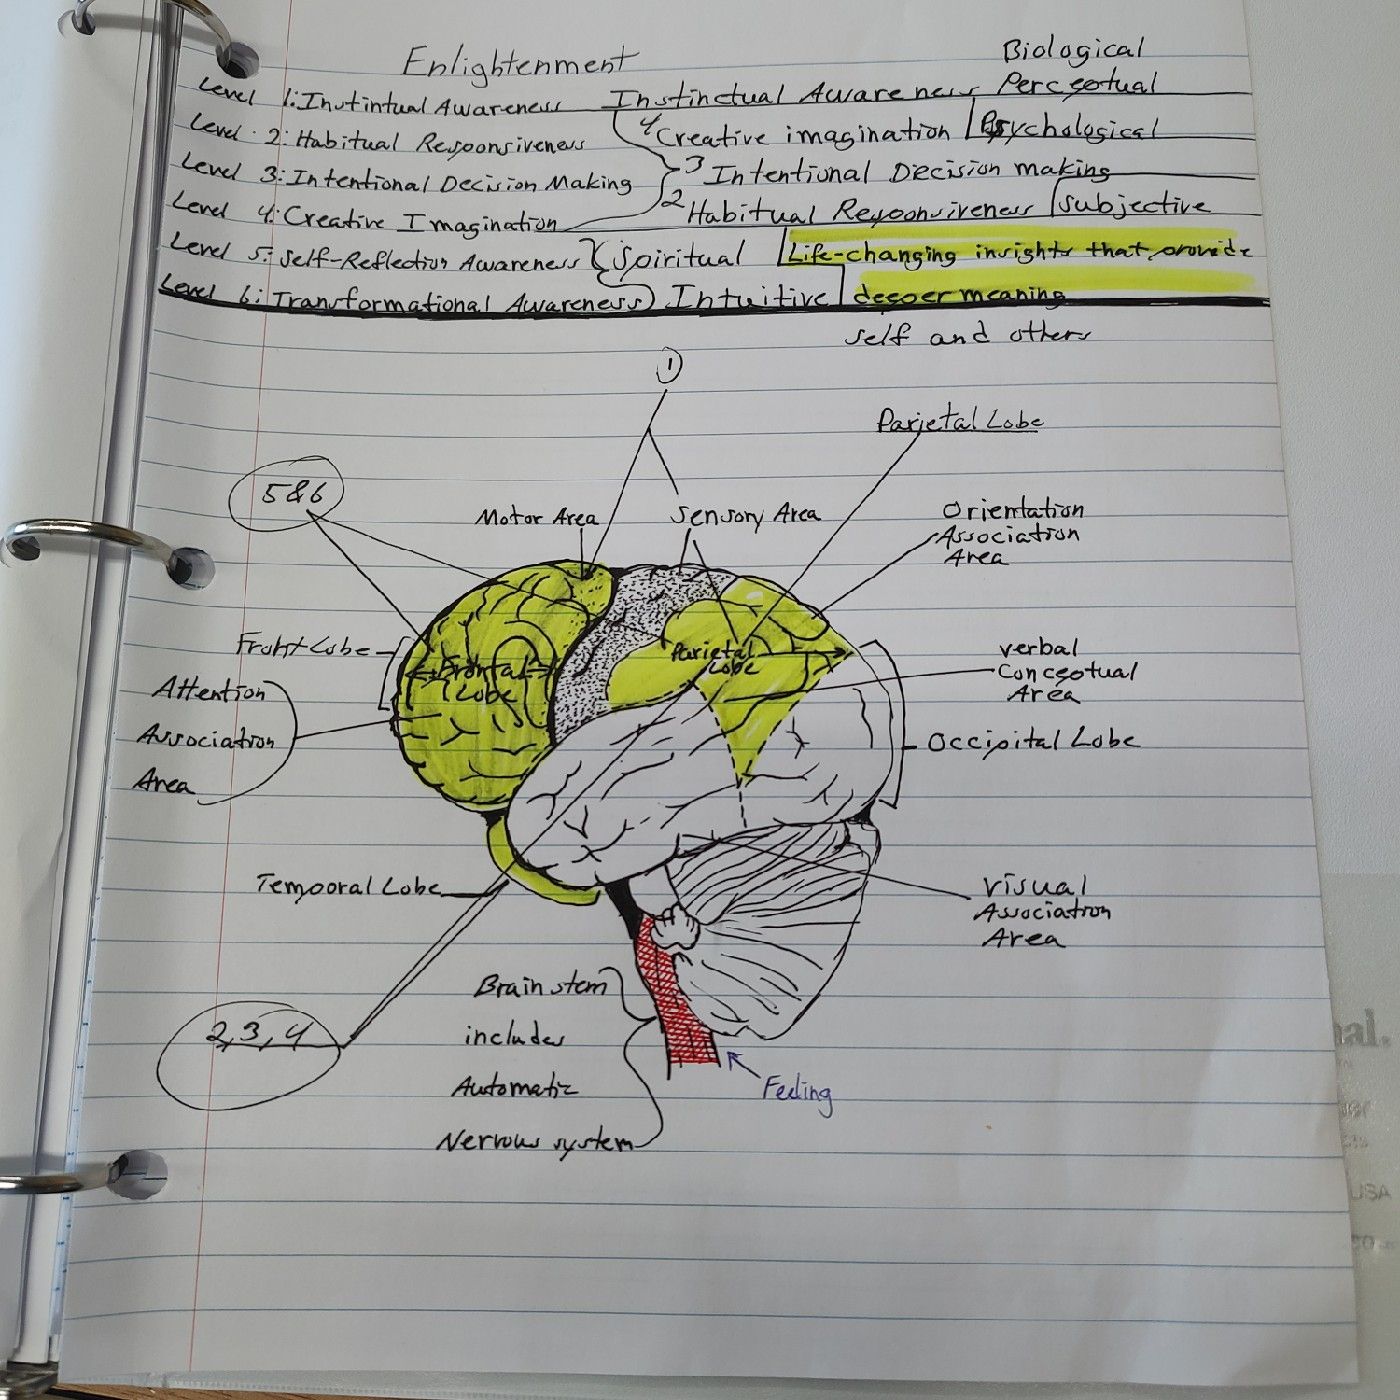 Enlightenment
Biological
Level 1: Instintual Awareness Instinctual Awareness Perceptual
Level 2: Habitual Responsiveness 4 Creative imagination Psychological
Level 3: Intentional Decision Making 3 Intentional Decision making
Level 4: Creative Imagination 2 Habitual Responsiveness subjective
Level 5: Self-Reflection Awareness Spiritual Life-changing insights that provide
Level 6: Transformational Awareness Intuitive deeper meaning
self and others
1
Parietal Lobe
5&6
Motor Area
Sensory Area
Orientation
Association
Area
Front Lobe
Frontal
Lobe
Parietal
Lobe
verbal
Conceptual
Area
Attention
Association
Area
Occipital Lobe
Temporal Lobe
Visual
Association
Area
2,3,4
Brain stem
includes
Automatic
Nervous system
Feeling
USA